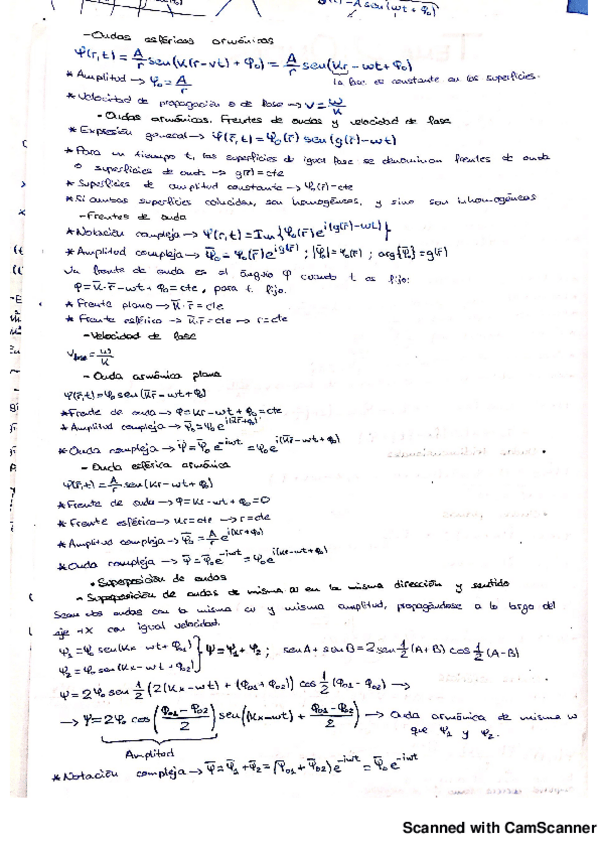 - Ondas esféricas armónicas
Ψ(r,t) = A/r sen(K(r-vt) + φ₀) = A/r sen(Kr - wt + φ₀)
* Amplitud → Ψ₀ = A/r la fase es constante en las superficies.
* Velocidad de propagación o de fase → v = w/K
- Ondas armónicas. Frentes de ondas y velocidad de fase
* Expresión general → Ψ(r̄,t) = Ψ₀(r̄) sen(g(r̄) - wt)
* Para un tiempo t, las superficies de igual fase se denominan frentes de onda
o superficies de onda → g(r̄) = cte
* Superficies de amplitud constante → Ψ₀(r̄) = cte
* Si ambas superficies coinciden, son homogéneas, y sino son inhomogéneas
- Frentes de onda
* Notación compleja → Ψ(r̄,t) = Im{Ψ₀(r̄)e^i(g(r̄)-wt)}
* Amplitud compleja → Ψ̄₀ = Ψ₀(r̄)e^ig(r̄) ; |Ψ̄₀| = Ψ₀(r̄) ; arg{Ψ̄} = g(r̄)
Un frente de onda es el ángulo φ cuando t es fijo:
φ = K̄·r̄ - wt + φ₀ = cte, para t fijo.
* Frente plano → K̄·r̄ = cte
* Frente esférico → K̄·r̄ = cte → r = cte
- Velocidad de fase
v fase = w/K
- Onda armónica plana
Ψ(r̄,t) = Ψ₀ sen(K̄r̄ - wt + φ₀)
* Frente de onda → φ = Kr - wt + φ₀ = cte
* Amplitud compleja → Ψ̄₀ = Ψ₀e^i(K̄r̄+φ₀)
* Onda compleja → Ψ̄ = Ψ̄₀e^-iwt = Ψ₀e^i(K̄r̄-wt+φ₀)
- Onda esférica armónica
Ψ(r̄,t) = A/r sen(Kr - wt + φ₀)
* Frente de onda → φ = Kr - wt + φ₀ = 0
* Frente esférico → Kr = cte → r = cte
* Amplitud compleja → Ψ̄₀ = A/r e^i(Kr+φ₀)
* Onda compleja → Ψ̄ = Ψ̄₀e^-iwt = Ψ₀e^i(Kr-wt+φ₀)
• Superposición de ondas
- Superposición de ondas de misma w en la misma dirección y sentido
Sean dos ondas con la misma w y misma amplitud, propagándose a lo largo del
eje +X con igual velocidad.
Ψ₁ = Ψ₀ sen(Kx - wt + φ₀₁)
Ψ₂ = Ψ₀ sen(Kx - wt + φ₀₂) } Ψ = Ψ₁ + Ψ₂ ; senA + senB = 2sen 1/2 (A+B) cos 1/2 (A-B)
Ψ = 2Ψ₀ sen 1/2 (2(Kx - wt) + (φ₀₁ + φ₀₂)) cos 1/2 (φ₀₁ - φ₀₂) →
→ Ψ = 2Ψ₀ cos((φ₀₁ - φ₀₂)/2) sen((Kx - wt) + (φ₀₁ - φ₀₂)/2) → Onda armónica de misma w
que Ψ₁ y Ψ₂.
Amplitud
* Notación compleja → Ψ̄ = Ψ̄₁ + Ψ̄₂ = (Ψ̄₀₁ + Ψ̄₀₂)e^-iwt = Ψ̄₀e^-iwt
Scanned with CamScanner